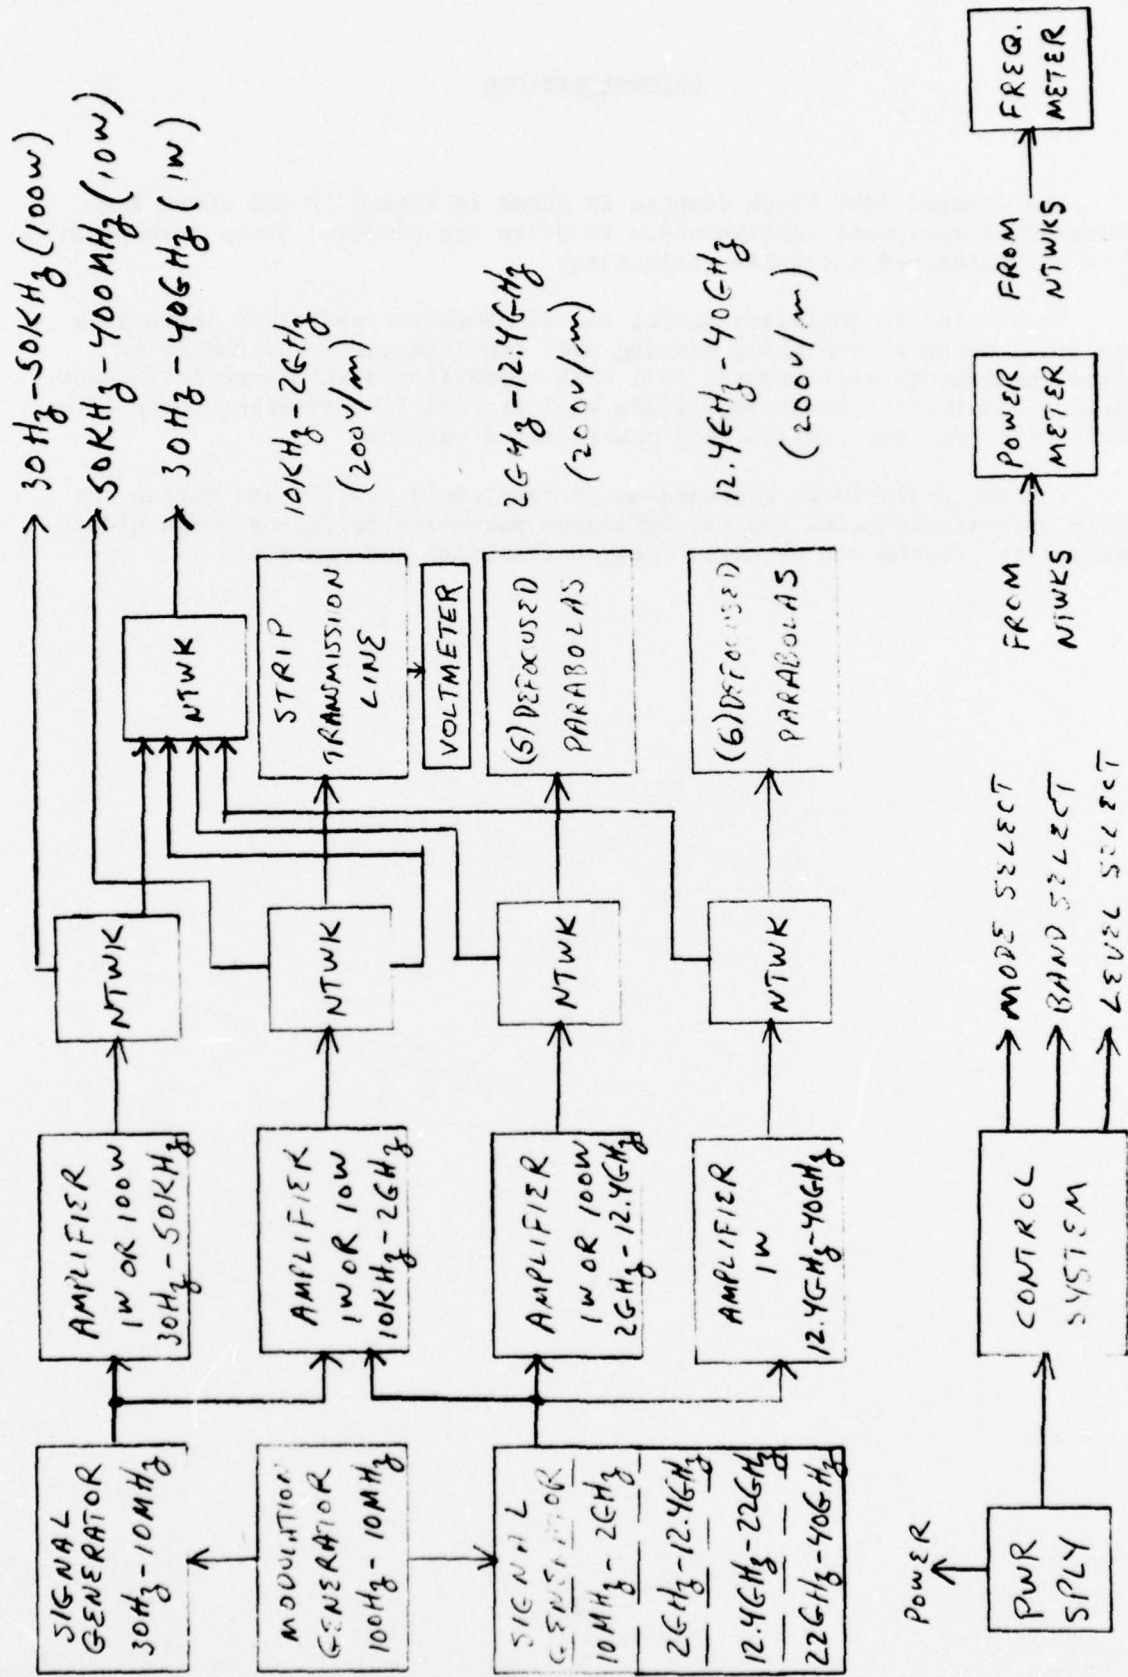 SIGNAL
GENERATOR
30Hz-10MHz
MODULATION
GENERATOR
100Hz-10MHz
SIGNAL
GENERATOR
10MHz-2GHz
2GHz-12.4GHz
12.4GHz-22GHz
22GHz-40GHz
AMPLIFIER
1W OR 100W
30Hz-50KHz
AMPLIFIER
1W OR 10W
10KHz-2GHz
AMPLIFIER
1W OR 100W
2GHz-12.4GHz
AMPLIFIER
1W
12.4GHz-40GHz
NTWK
NTWK
NTWK
NTWK
NTWK
STRIP
TRANSMISSION
LINE
VOLTMETER
(5) DEFOCUSED
PARABOLAS
(6) DEFOCUSED
PARABOLAS
30Hz-50KHz (100W)
50KHz-400MHz (10W)
30Hz-40GHz (1W)
10KHz-2GHz
(200V/m)
2GHz-12.4GHz
(200V/m)
12.4GHz-40GHz
(20V/m)
POWER
PWR
SPLY
CONTROL
SYSTEM
MODE SELECT
BAND SELECT
LEVEL SELECT
FROM
NTWKS
POWER
METER
FROM
NTWKS
FREQ.
METER